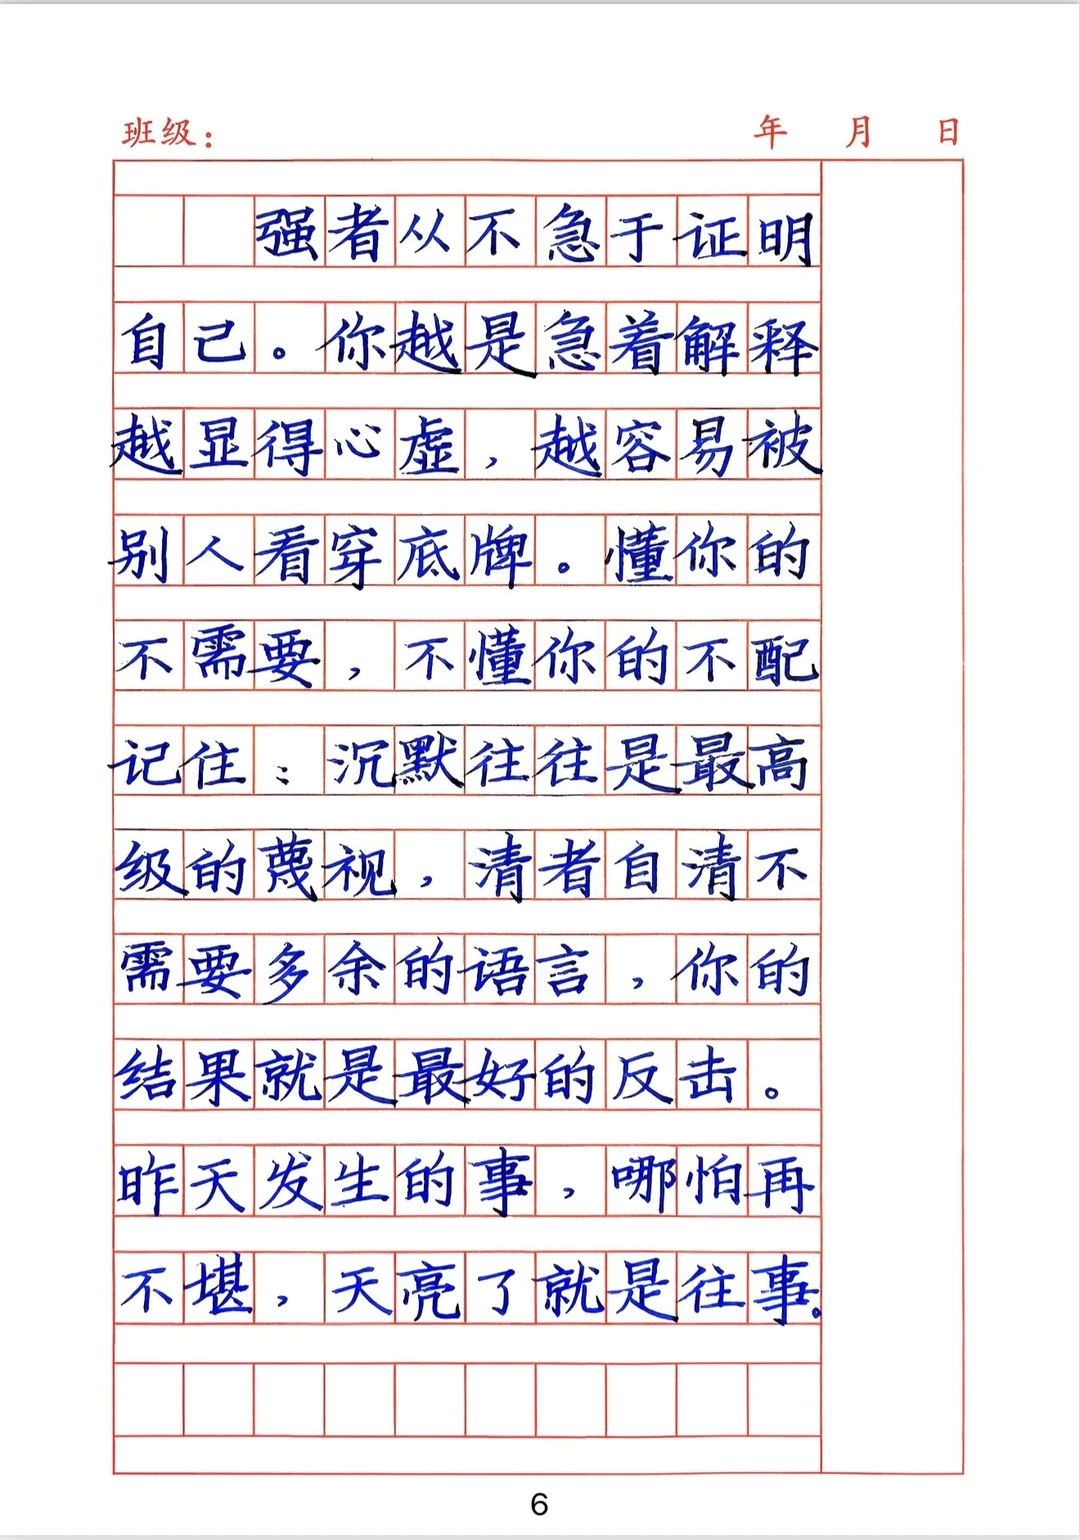 班级： 年 月 日
强者从不急于证明
自己。你越是急着解释
越显得心虚，越容易被
别人看穿底牌。懂你的
不需要，不懂你的不配
记住：沉默往往是最高
级的蔑视，清者自清不
需要多余的语言，你的
结果就是最好的反击。
昨天发生的事，哪怕再
不堪，天亮了就是往事。
6